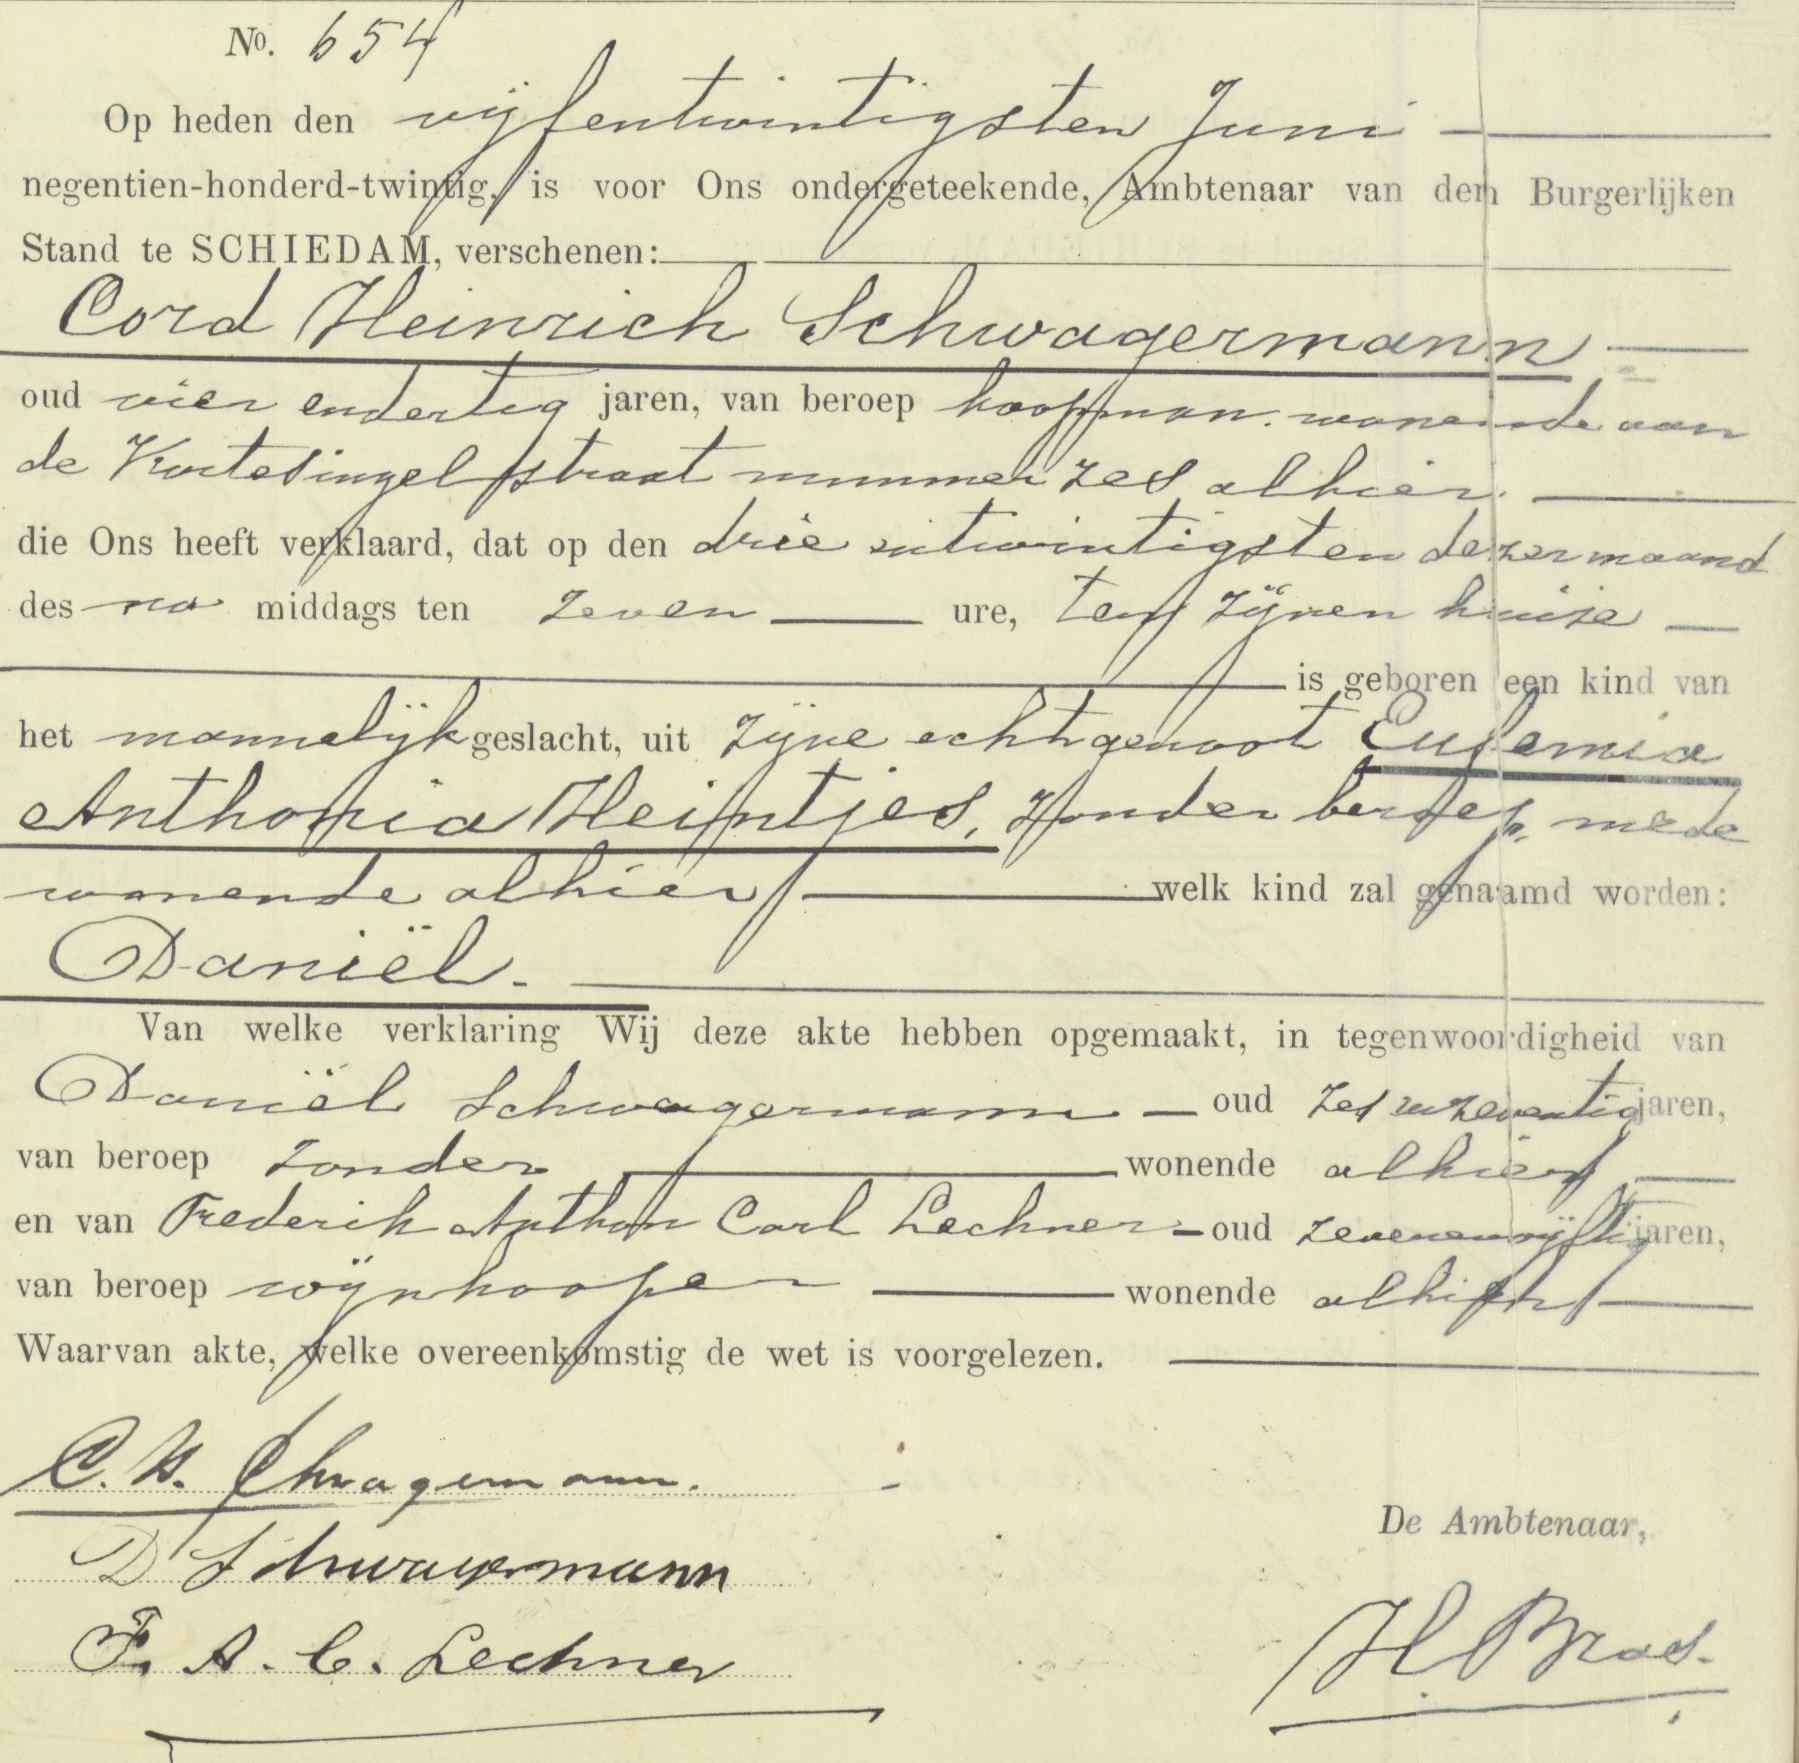 No. 654
Op heden den vijfentwintigsten Juni
negentien-honderd-twintig, is voor Ons ondergeteekende, Ambtenaar van den Burgerlijken
Stand te SCHIEDAM, verschenen:
Cord Heinrich Schwagermann
oud vier endertig jaren, van beroep koopman. wonende aan
de Kortesingelstraat nummer zes alhier.
die Ons heeft verklaard, dat op den drie entwintigsten dezer maand
des na middags ten zeven ure, ten zijnen huize
is geboren een kind van
het mannelijk geslacht, uit zijne echtgenoot Eufemia
Anthonia Heijntjes, zonder beroep, mede
wonende alhier welk kind zal genaamd worden:
Daniël.
Van welke verklaring Wij deze akte hebben opgemaakt, in tegenwoordigheid van
Daniël Schwagermann oud zes enzeventig jaren,
van beroep zonder wonende alhier
en van Frederik Anthon Carl Lechner oud zevenenvijftig jaren,
van beroep wijnkooper wonende alhier
Waarvan akte, welke overeenkomstig de wet is voorgelezen.
C. H. Schwagermann.
D Schwagermann
De Ambtenaar,
F. A. C. Lechner
H Bras.